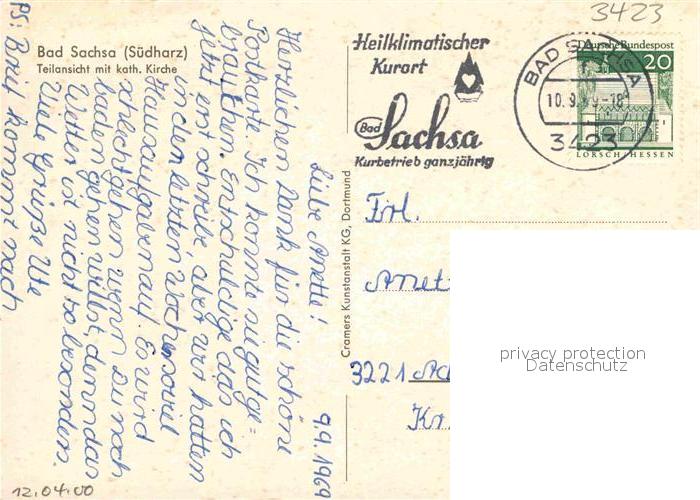 3423
Bad Sachsa (Südharz)
Teilansicht mit kath. Kirche
Heilklimatischer
Kurort
Bad Sachsa
Kurbetrieb ganzjährig
BAD SACHSA
10.9.69-18
3423
Deutsche Bundespost
20
LORSCH/HESSEN
9.9.1969
Liebe Anette!
Herzlichen Dank für die schöne
Postkarte. Ich konnte sie gut ge=
brauchen. Entschuldige das ich
jetzt erst schreibe, aber wir hatten
in den letzten Wochen soviel
Hausaufgaben auf. Es wird
schlecht gehen wenn Du noch
baden gehen willst, denn das
Wetter ist nicht so besonders.
Viele Grüße Ute
PS: Brief kommt nach
Cramers Kunstanstalt KG, Dortmund
Frl.
Anet
3221 Ad
Kr
12.04.00
privacy protection
Datenschutz